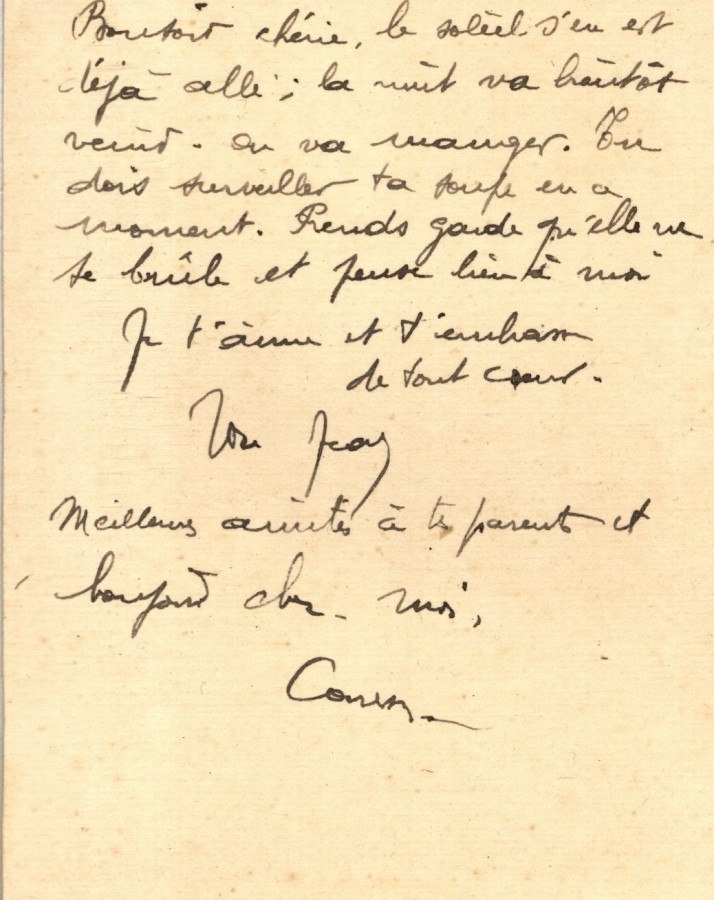 Bonsoir chérie, le soleil s'en est
déjà allé ; la nuit va bientôt
venir. on va manger. Tu
dois surveiller ta soupe en ce
moment. Prends garde qu'elle ne
se brûle et pense bien à moi
Je t'aime et t'embrasse
de tout cœur.
Ton
Meilleures amitiés à tes parents et
bonjour chez moi,